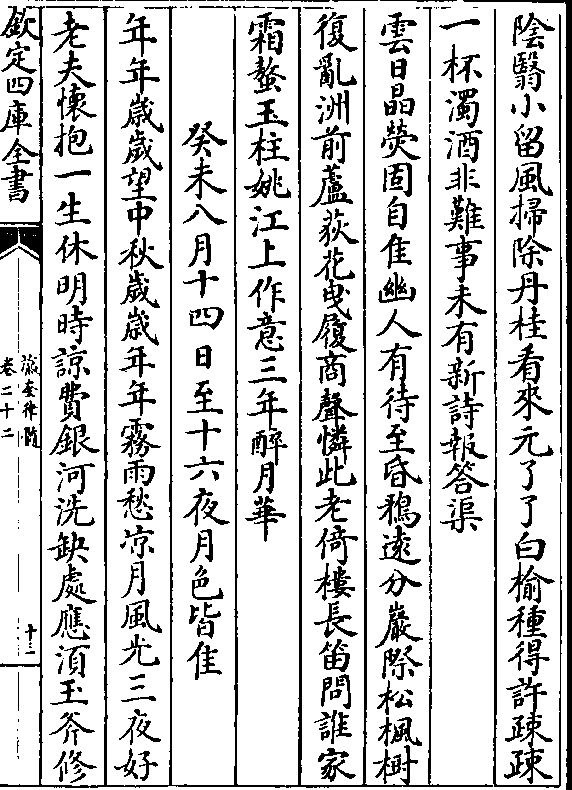 陰翳小留風掃除丹桂看來元了了白榆種得許疎疎
一杯濁酒非難事未有新詩報答渠
雲日晶熒固自佳幽人有待至昏鵶遠分巖際松楓樹
復亂洲前蘆荻花曳履商聲憐此老倚樓長笛問誰家
霜螯玉柱姚江上作意三年醉月華
癸未八月十四日至十六夜月色皆佳
年年歲歲望中秋歲歲年年霧雨愁涼月風光三夜好
老夫懷抱一生休明時諒費銀河洗缺處應湏玉斧修
欽定四庫全書
瀛奎律髓
卷二十二
十三